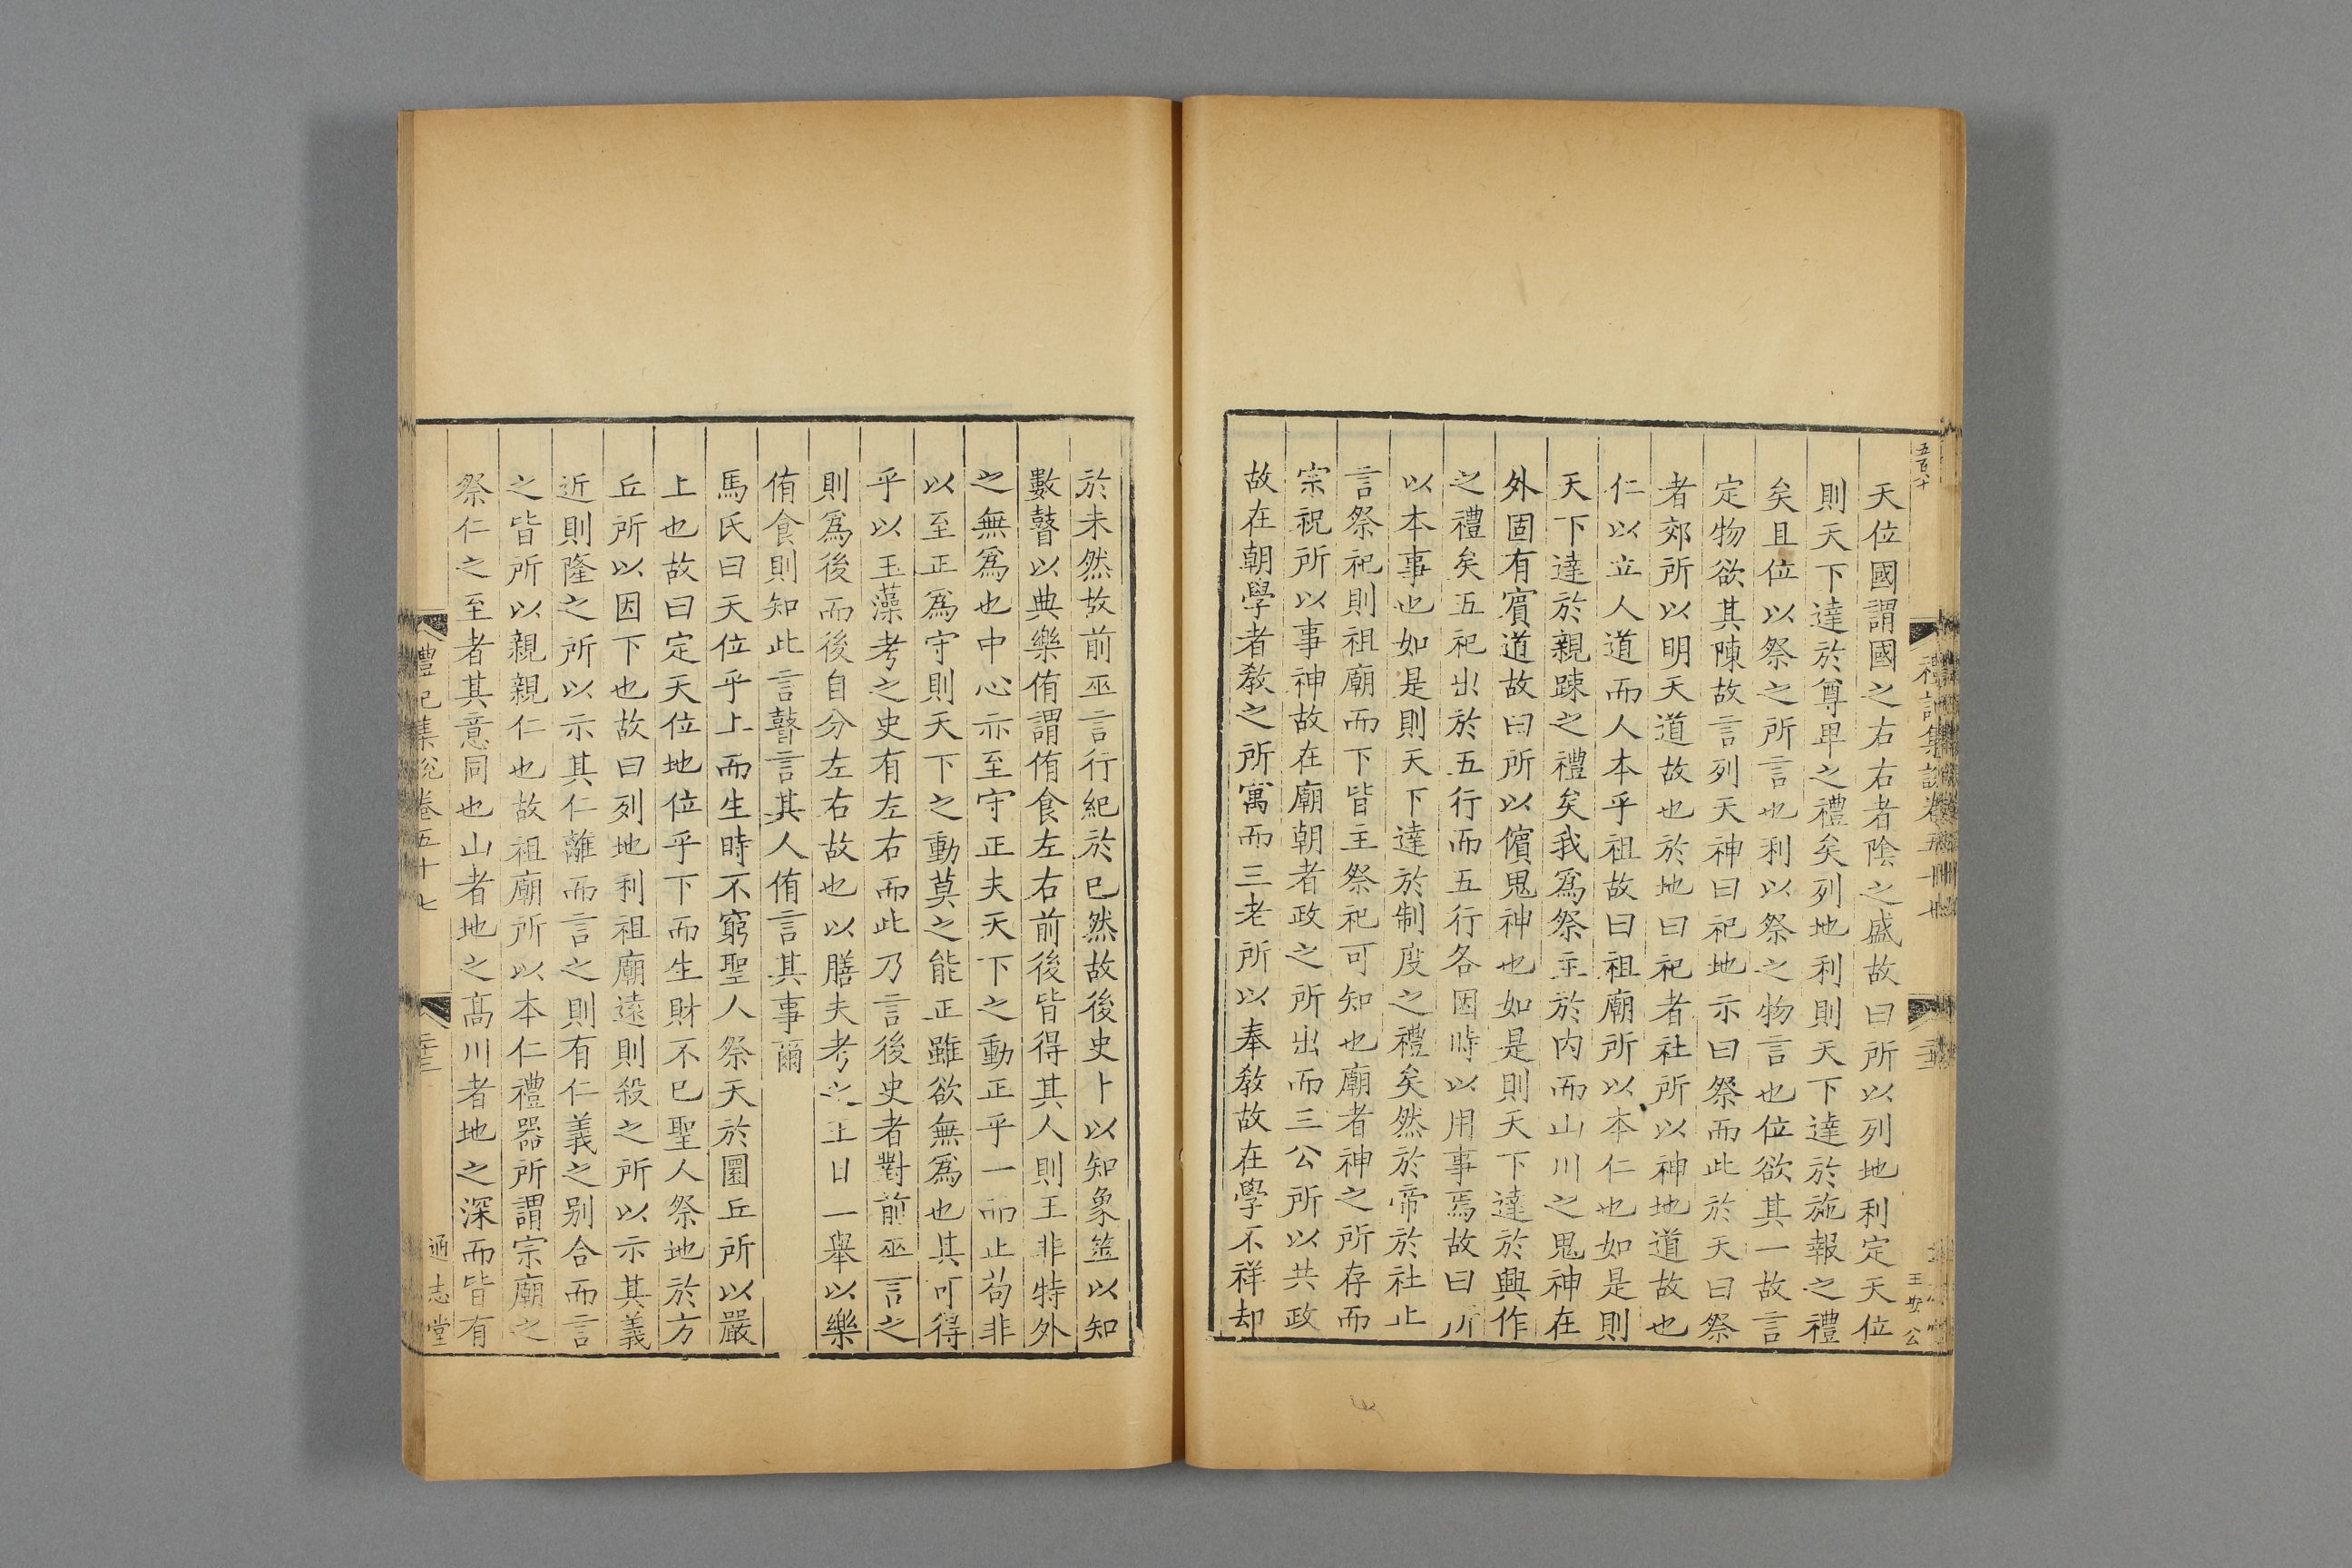 五百十
天位國謂國之右右者陰之盛故曰所以列地利定天位
則天下達於尊卑之禮矣列地利則天下達於施報之禮
矣且位以祭之所言也利以祭之物言也位欲其一故言
定物欲其陳故言列天神曰祀地示曰祭而此於天曰祭
者郊所以明天道故也於地曰祀者社所以神地道故也
仁以立人道而人本乎祖故曰祖廟所以本仁也如是則
天下達於親踈之禮矣我爲祭主於内而山川之鬼神在
外固有賓道故曰所以儐鬼神也如是則天下達於興作
之禮矣五祀出於五行而五行各因時以用事焉故曰所
以本事也如是則天下達於制度之禮矣然於帝於社止
言祭祀則祖廟而下皆主祭祀可知也廟者神之所存而
宗祝所以事神故在廟朝者政之所出而三公所以共政
故在朝學者敎之所寓而三老所以奉敎故在學不祥却
於未然故前巫言行紀於已然故後史卜以知象筮以知
數瞽以典樂侑謂侑食左右前後皆得其人則王非特外
之無爲也中心亦至守正夫天下之動正乎一而止茍非
以至正爲守則天下之動莫之能正雖欲無爲也其可得
乎以玉藻考之史有左右而此乃言後史者對前巫言之
則爲後而後自分左右故也以膳夫考之王日一舉以樂
侑食則知此言瞽言其人侑言其事爾
馬氏曰天位乎上而生時不窮聖人祭天於圜丘所以嚴
上也故曰定天位地位乎下而生財不已聖人祭地於方
丘所以因下也故曰列地利祖廟遠則殺之所以示其義
近則隆之所以示其仁離而言之則有仁義之别合而言
之皆所以親親仁也故祖廟所以本仁禮器所謂宗廟之
祭仁之至者其意同也山者地之髙川者地之深而皆有
禮記集說卷五十七
通志堂